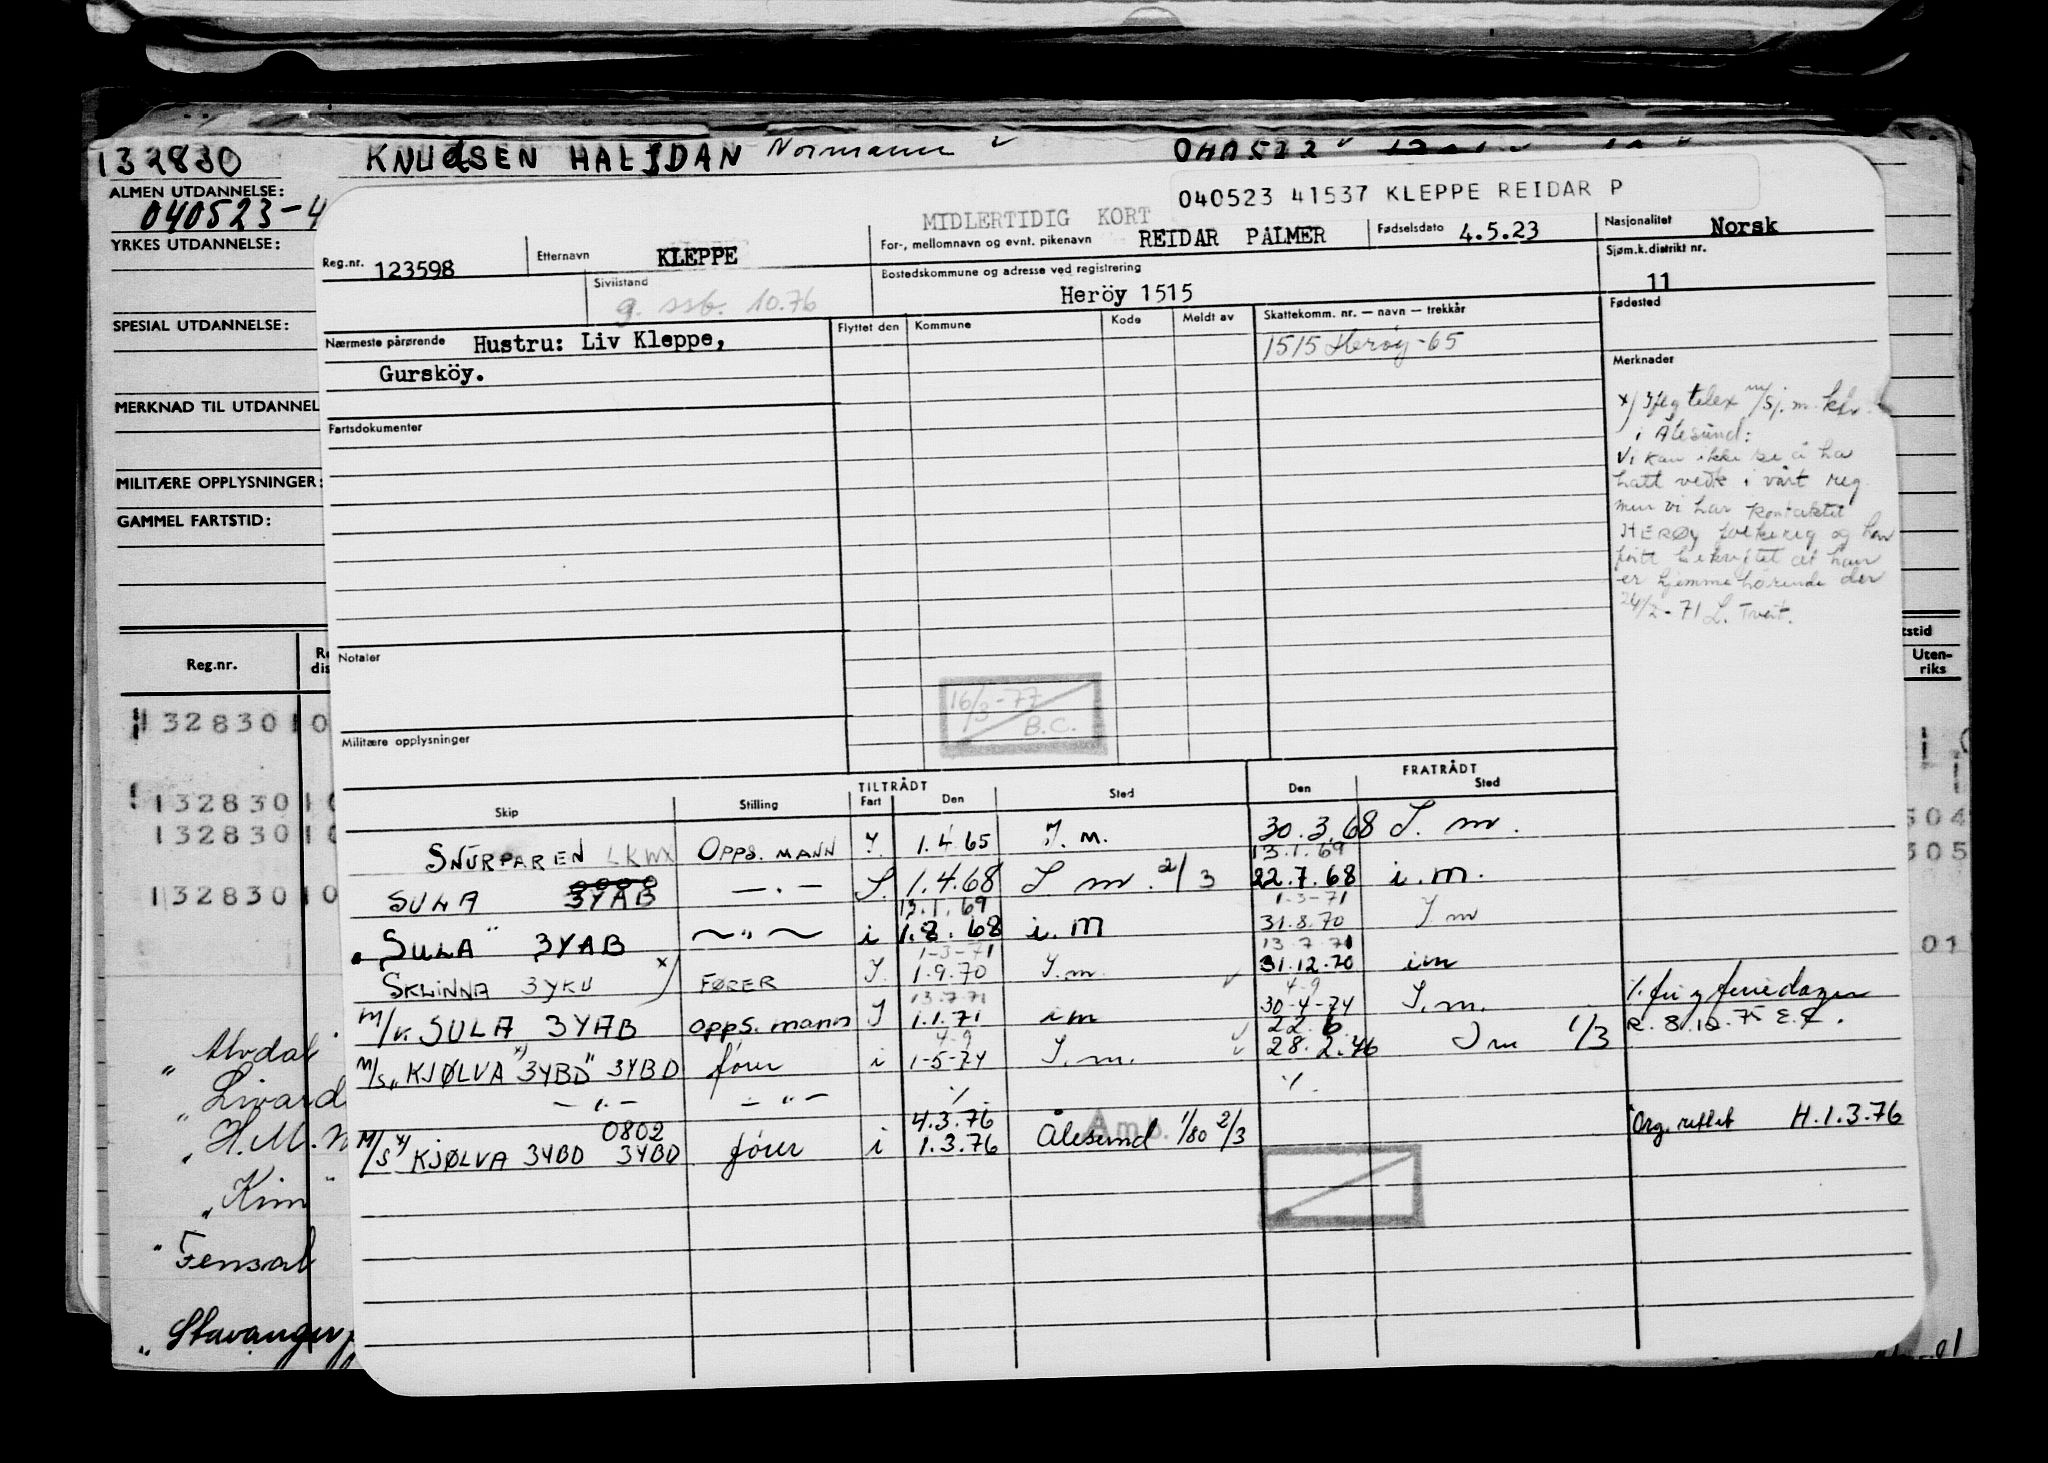 132830 KNUdSEN HALfDAN Normann
ALMEN UTDANNELSE:
040523-4
YRKES UTDANNELSE:
SPESIAL UTDANNELSE:
MERKNAD TIL UTDANNEL
MILITÆRE OPPLYSNINGER:
GAMMEL FARTSTID:
Reg.nr.
132830 10
132830 10
132830 10
132830 10
" Alvdal
" H.M.
" Kim "
" Fensal
" Stavanger
tstid
Uten-
riks
504
305
01
040523 41537 KLEPPE REIDAR P
MIDLERTIDIG KORT
Reg.nr. 123598 Etternavn KLEPPE For-, mellomnavn og evnt. pikenavn REIDAR PALMER Fødselsdato 4.5.23 Nasjonalitet Norsk
Sivilstand g. ssb. 10.76 Bostedskommune og adresse ved registrering Heröy 1515 Sjøm.k.distrikt nr. 11
Nærmeste pårørende Hustru: Liv Kleppe, Flyttet den Kommune Kode Meldt av Skattekomm. nr. — navn — trekkår Fødested
Gursköy. 1515 Herøy-65
Fartsdokumenter
Merknader
x) Ifølg telex m/Sj.m.ktr.
i Ålesund:
Vi kan ikke se å ha
hatt vedk i vårt reg
men vi har kontaktet
HERØY folkereg og har
fått bekreftet at han
er hjemmehørende der
24/2-71 L. Tveit.
Notaler
16/3-77
B.C.
Militære opplysninger
TILTRÅDT FRATRÅDT
Skip Stilling Fart Den Sted Den Sted
SNURPAREN LKWX OPPS. MANN I. 1.4.65 I. m. 30.3.68 I. m.
13.1.69
SULA 3YAB —.— I. 1.4.68 I m. 2/3 22.7.68 i.m.
13.1.69 1-3-71
"SULA" 3YAB —"— i 1.8.68 i.m 31.8.70 I m
1-3-71 13.7.71
SKLINNA 3YKU x) FØRER I. 1.9.70 I.m. 31.12.70 im
13.7.71 4-9
M/k. SULA 3YAB opps. mann I 1.1.71 im 30-4-74 I.m. 1. fri y feriedager
4-9 22.6 R. 8.12.75 E.E.
M/s "KJØLVA" 3YBD" 3YBD fører i 1-5-74 I.m. 28.2.76 I m 1/3
—"— —"— ./. ./.
0802 4.3.76 Amb.
M/S "KJØLVA 3YBD 3YBD fører i 1.3.76 Ålesund 1/80 2/3 Org. rettet H.1.3.76